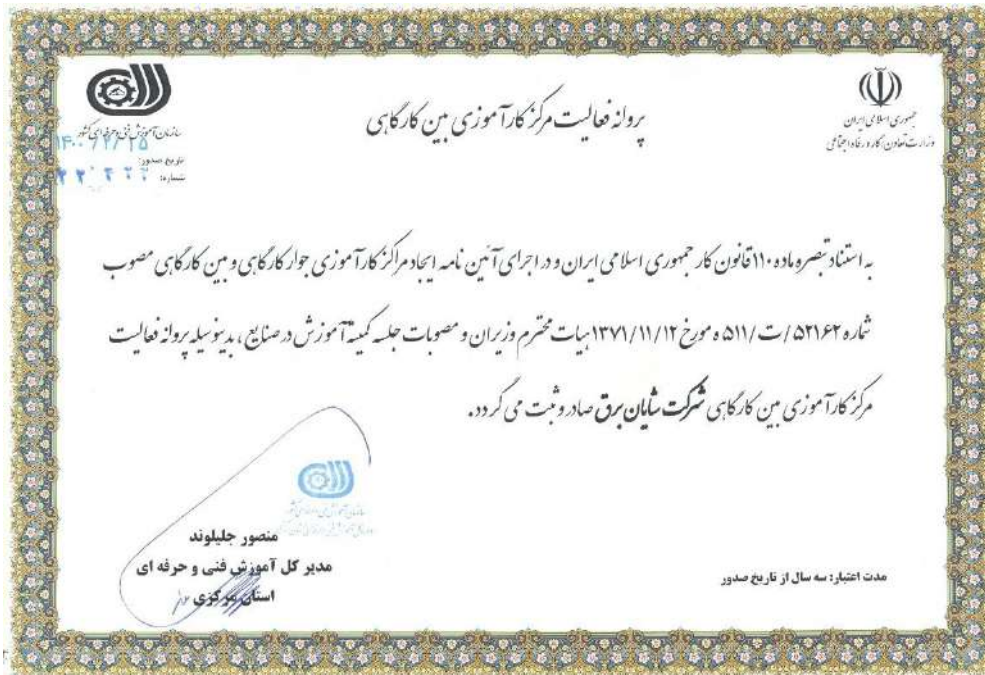 جمهوری اسلامی ایران
وزارت تعاون، کار و رفاه اجتماعی
پروانه فعالیت مرکز کارآموزی بین کارگاهی
سازمان آموزش فنی و حرفه ای کشور
تاریخ صدور:
شماره:
به استناد تبصره ماده ۱۱۰ قانون کار جمهوری اسلامی ایران و در اجرای آئین نامه ایجاد مراکز کارآموزی جوار کارگاهی و بین کارگاهی مصوب
شماره ۵۲۱۶۲/ت/۵۱۱ ه مورخ ۱۳۷۱/۱۱/۱۲ هیات محترم وزیران و مصوبات جلسه کمیته آموزش در صنایع، بدینوسیله پروانه فعالیت
مرکز کارآموزی بین کارگاهی شرکت شایان برق صادر و ثبت می گردد.
منصور جلیلوند
مدیر کل آموزش فنی و حرفه ای
استان مرکزی
مدت اعتبار: سه سال از تاریخ صدور